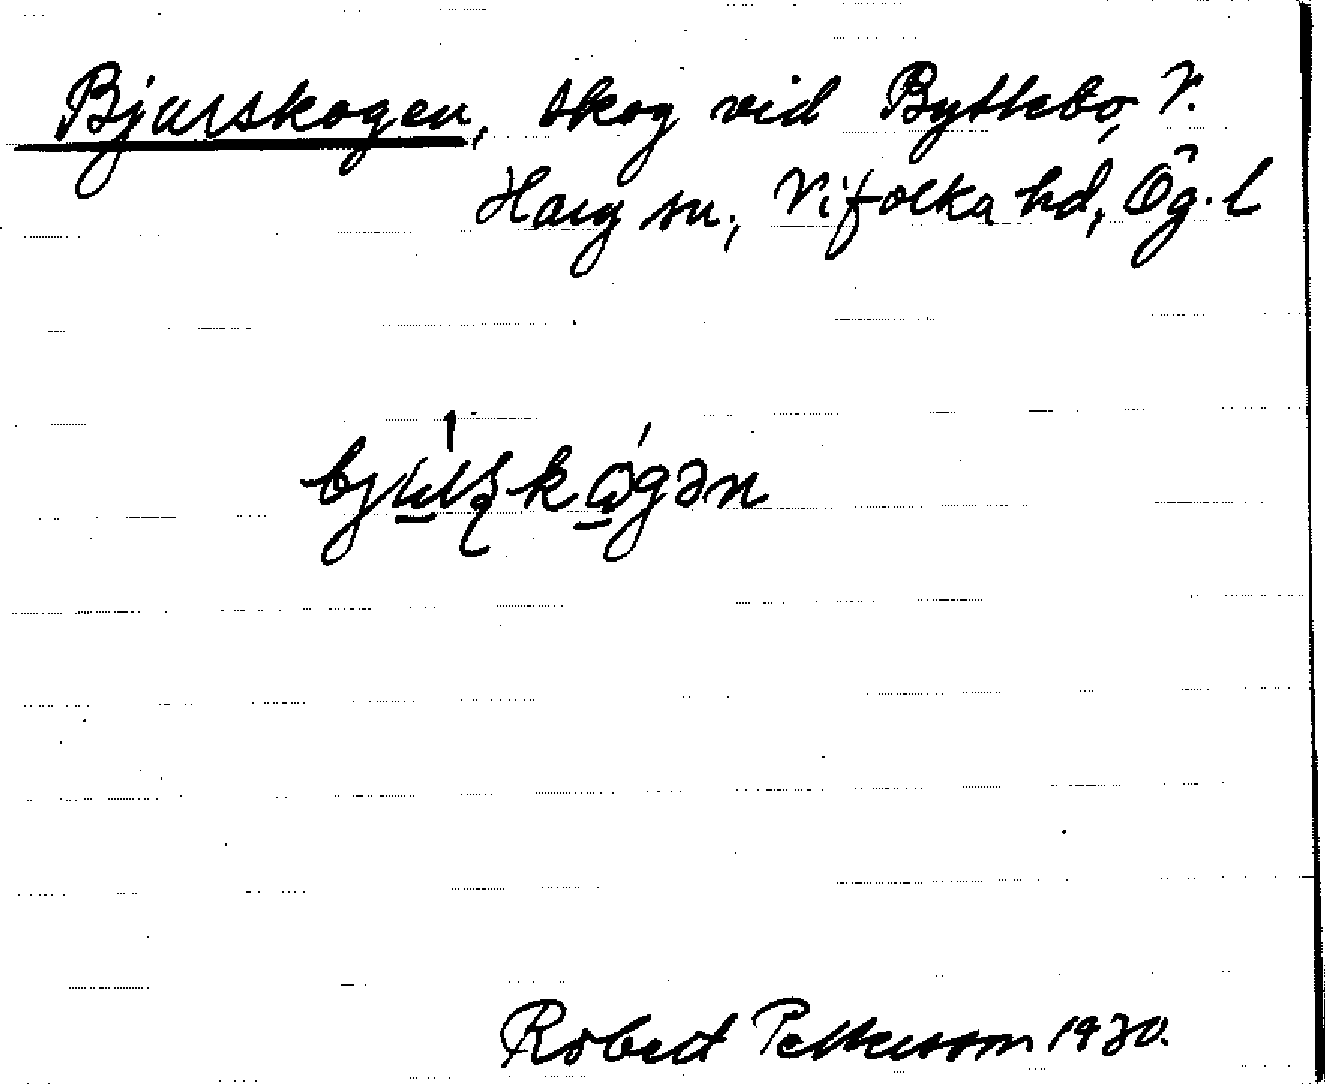 Bjarskogen, skog vid Byttebo, V.
Harg sn., Vifolka hd, Ög. l
Robert Pettersson 1930.